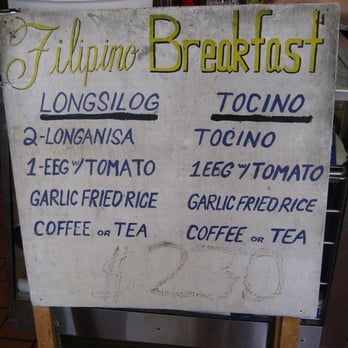 Filipino Breakfast
LONGSILOG
2-LONGANISA
1-EEG W/ TOMATO
GARLIC FRIED RICE
COFFEE OR TEA
TOCINO
TOCINO
1 EEG W/ TOMATO
GARLIC FRIED RICE
COFFEE OR TEA
$2.30